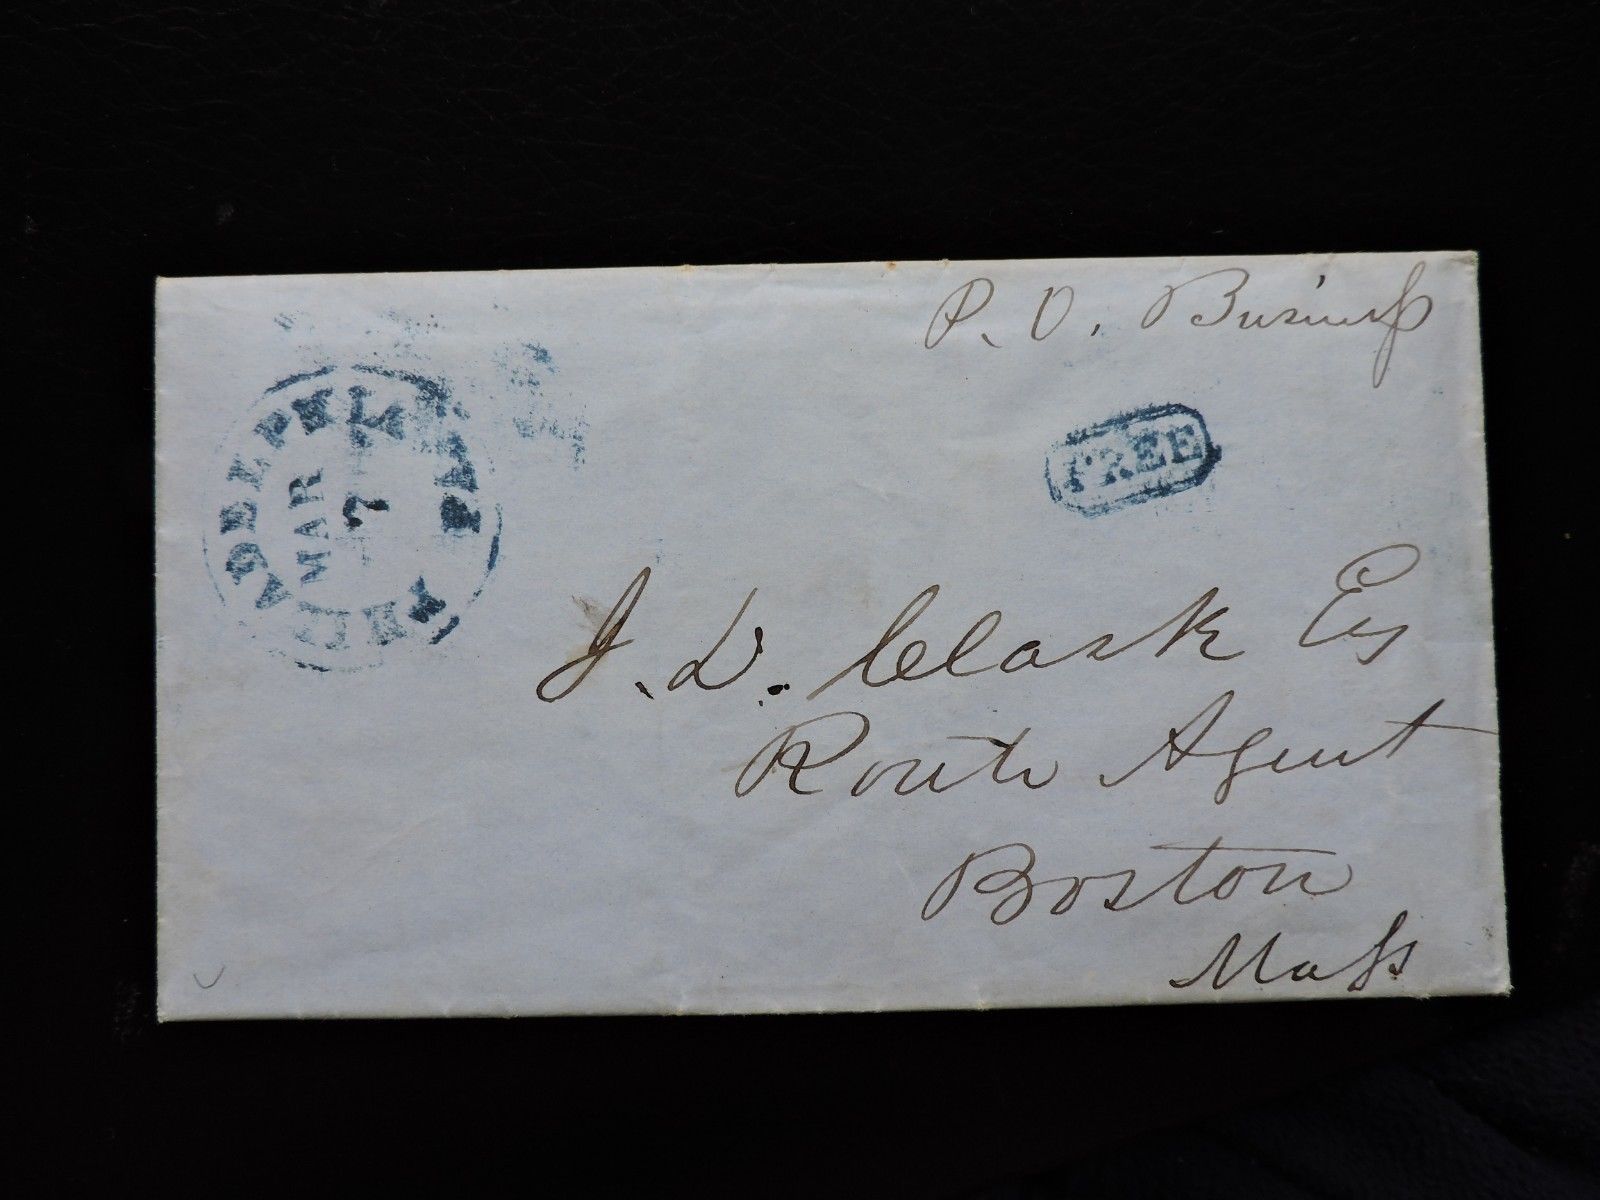 P. O. Business
PHILADELPHIA PA
MAR
7
FREE
J. D. Clark Esq
Route Agent
Boston
Mass